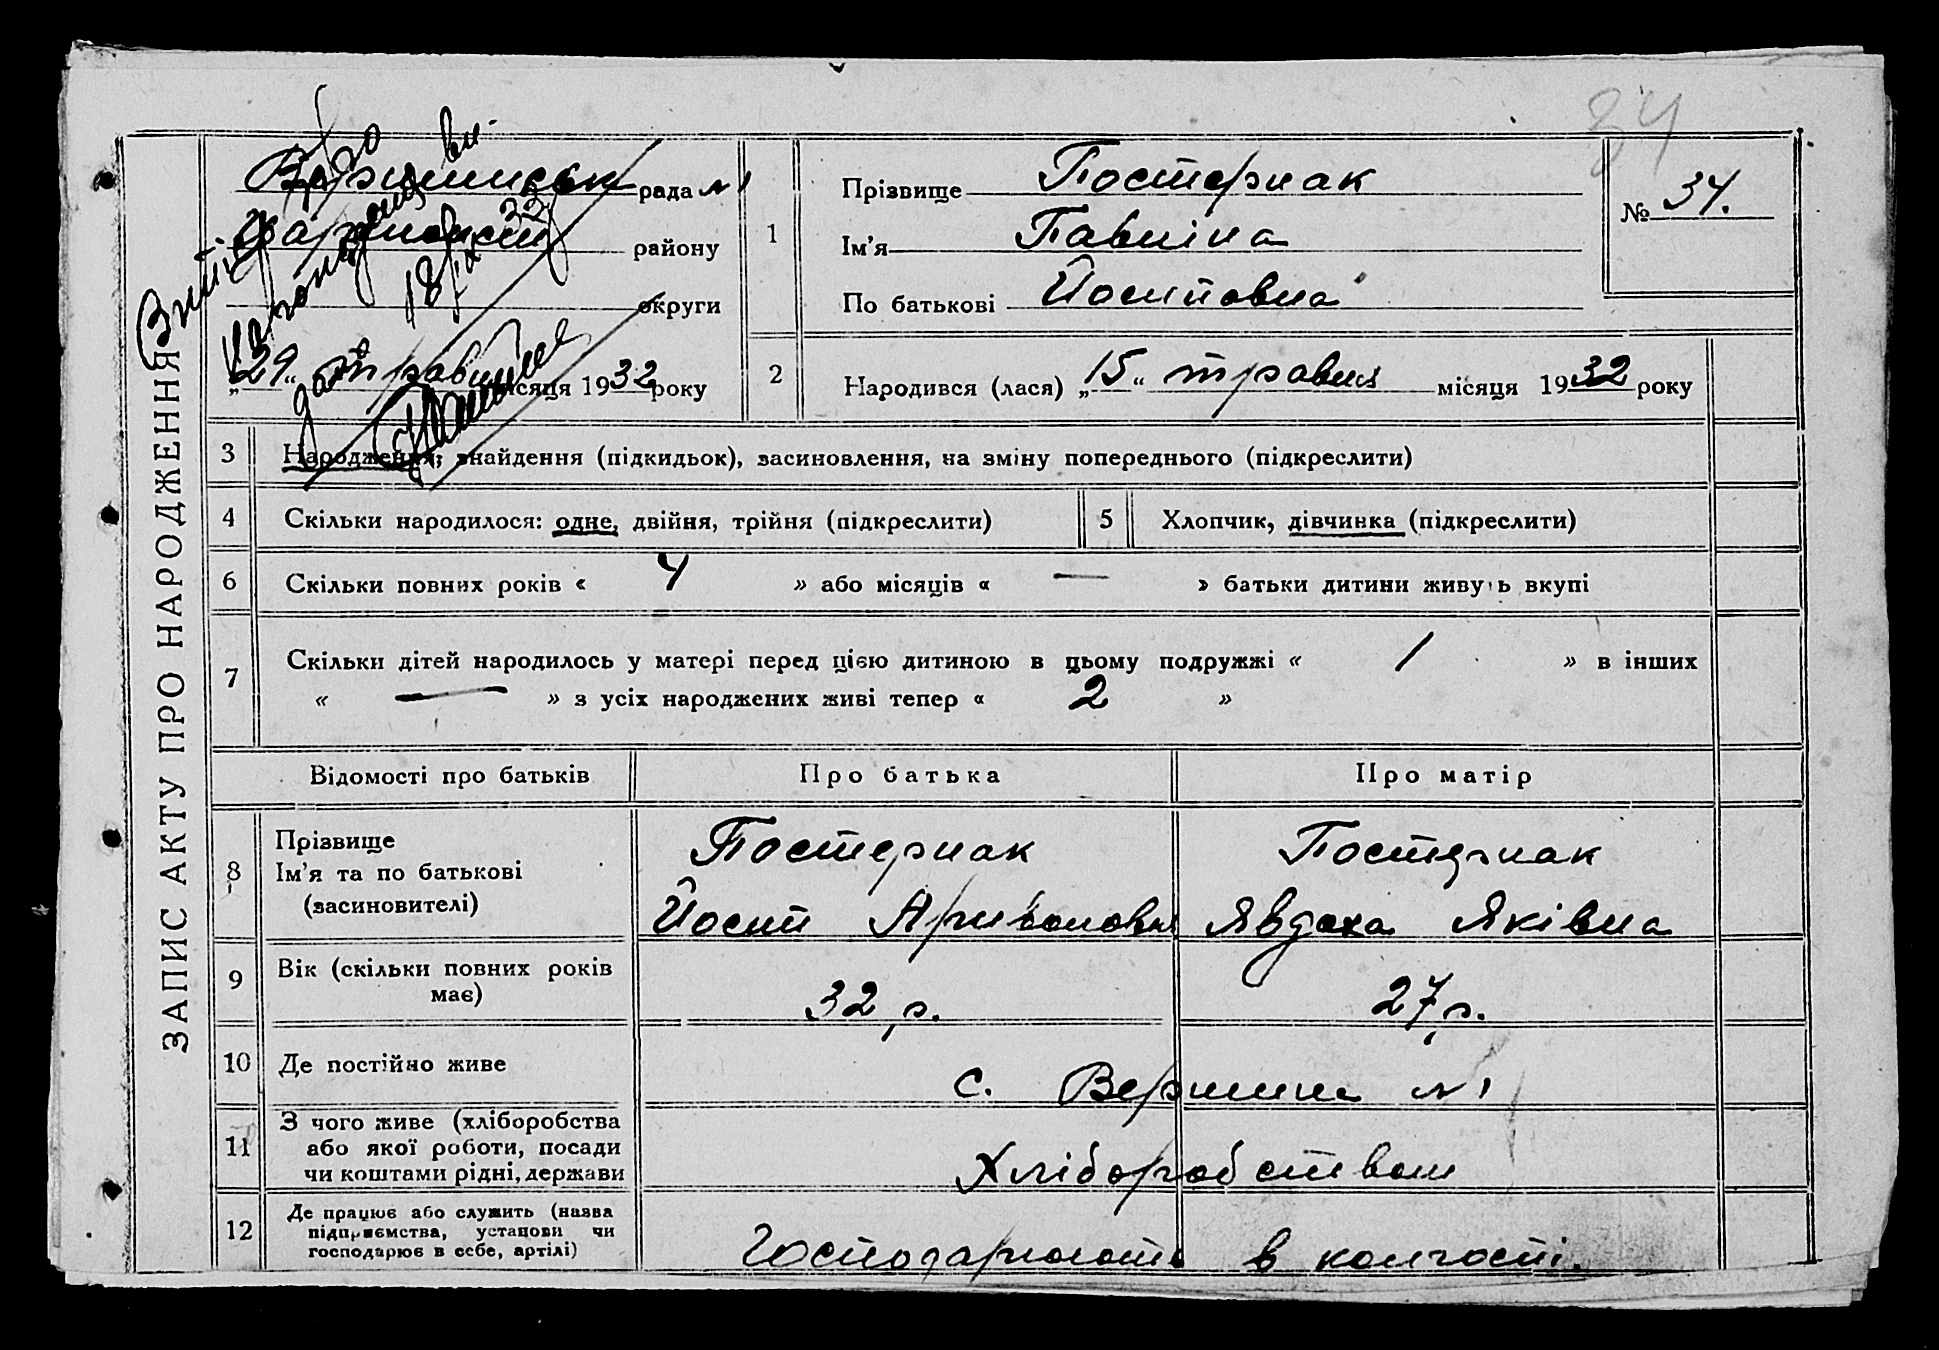 34
ЗАПИС АКТУ ПРО НАРОДЖЕННЯ
рада №1
району
округи
„29“ травня місяця 1932 року
1
Прізвище Постернак
Ім'я Павліна
По батькові Йосиповна
№ 34.
2
Народився (лася) „15“ травня місяця 1932 року
3 Народження, знайдення (підкидьок), засиновлення, на зміну попереднього (підкреслити)
4 Скільки народилося: одне, двійня, трійня (підкреслити)
5 Хлопчик, дівчинка (підкреслити)
6 Скільки повних років « 4 » або місяців « — » батьки дитини живуть вкупі
7 Скільки дітей народилось у матері перед цією дитиною в цьому подружжі « 1 » в інших
« — » з усіх народжених живі тепер « 2 »
Відомості про батьків Про батька Про матір
8 Прізвище
Ім'я та по батькові
(засиновителі)
Постернак Постернак
Йосип Явдоха Яківна
9 Вік (скільки повних років
має)
32 р. 27 р.
10 Де постійно живе
с. Вершини №1
11 З чого живе (хліборобства
або якої роботи, посади
чи коштами рідні, держави
Хліборобством
12 Де працює або служить (назва
підприємства, установи чи
господарює в себе, артілі)
Господарюють в колгоспі.